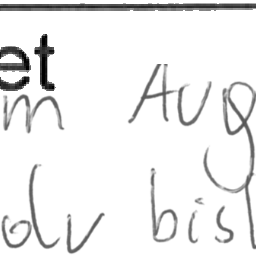 et
m Aug
olv bisl